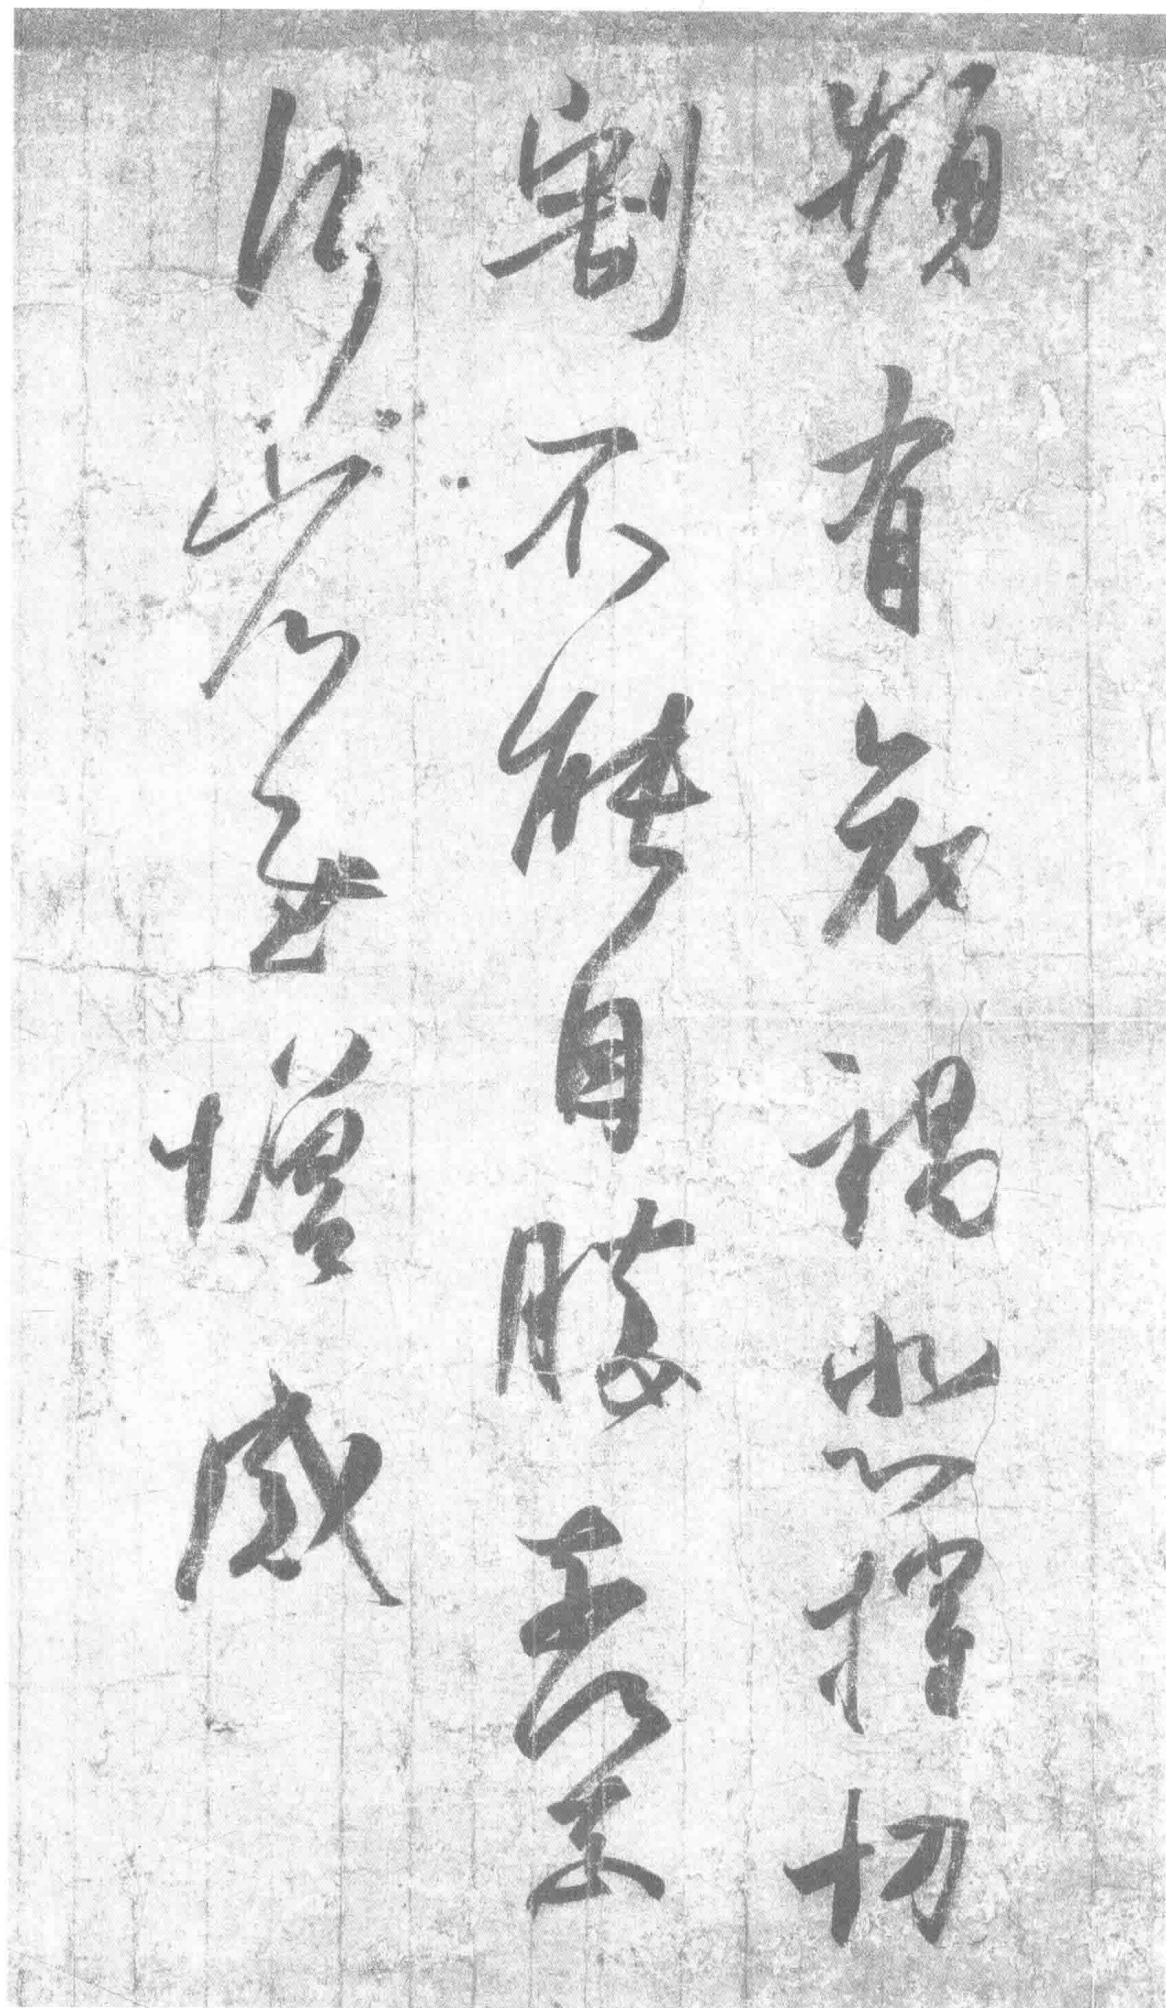 頻有哀禍悲摧切
割不能自勝奈何
奈何省慰增感